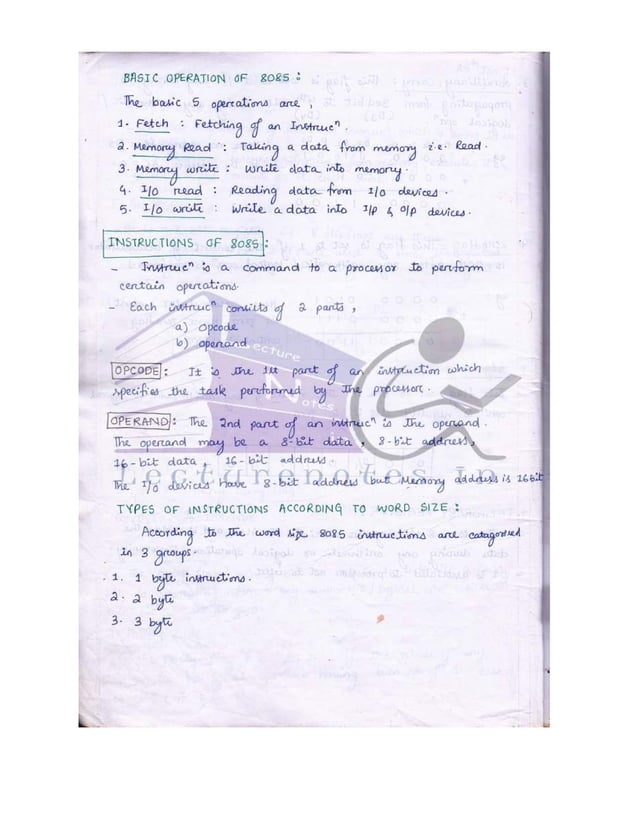 BASIC OPERATION OF 8085 :
The basic 5 operations are ,
1. Fetch : Fetching of an Instrucⁿ.
2. Memory Read : Taking a data from memory i.e. Read.
3. Memory write : Write data into memory.
4. I/O read : Reading data from I/O devices.
5. I/O write : Write a data into I/P & O/P devices.
INSTRUCTIONS OF 8085 :
- Instrucⁿ is a command to a processor to perform
certain operations.
- Each instrucⁿ consists of 2 parts ,
a) opcode
b) operand
OPCODE : It is the 1st part of an instruction which
specifies the task performed by the processor.
OPERAND : The 2nd part of an instrucⁿ is the operand.
The operand may be a 8-bit data , 8-bit address,
16-bit data , 16-bit address.
The I/O devices have 8-bit address but Memory address is 16bit
TYPES OF INSTRUCTIONS ACCORDING TO WORD SIZE :
According to the word size 8085 instructions are catagorised
in 3 groups.
1. 1 byte instructions.
2. 2 byte
3. 3 byte
Lecture
Notes
Lecturenotes.in